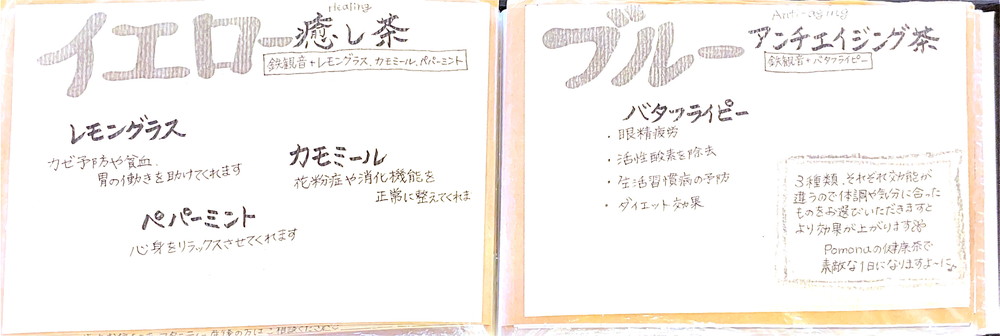 Healing
イエロー癒し茶
鉄観音+レモングラス、カモミール、ペパーミント
レモングラス
カゼ予防や貧血、
胃の働きを助けてくれます
カモミール
花粉症や消化機能を
正常に整えてくれま
ペパーミント
心身をリラックスさせてくれます
Anti-aging
ブルーアンチエイジング茶
鉄観音+バタフライピー
バタフライピー
・眼精疲労
・活性酸素を除去
・生活習慣病の予防
・ダイエット効果
3種類、それぞれ効能が
違うので体調や気分に合った
ものをお選びいただきますと
より効果が上がります
Pomonaの健康茶で
素敵な1日になりますよーに♪